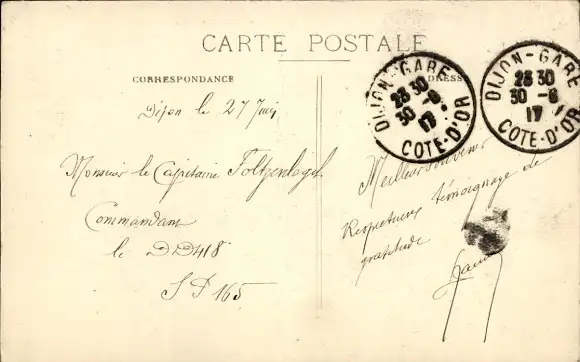 CARTE POSTALE
CORRESPONDANCE
Dijon le 27 Juin
Monsieur le Capitaine
Commandant
le DD418
SP 165
ADRESSE
DIJON-GARE
23 30
30 -6
17
COTE-D'OR
DIJON-GARE
23 30
30 -6
17
COTE-D'OR
Meilleur souvenir
Respectueux témoignage de
gratitude